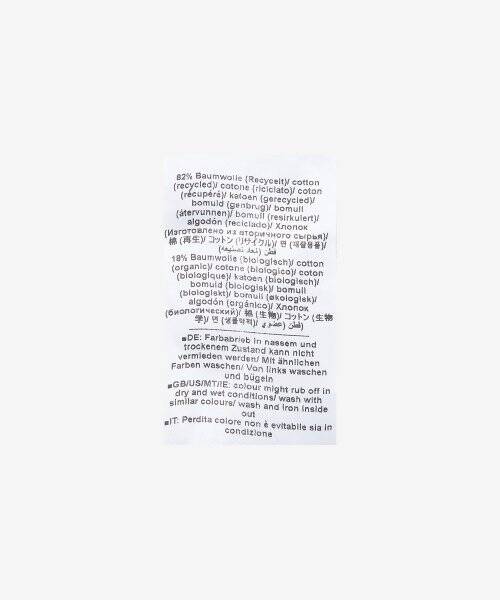 82% Baumwolle (Recycelt)/ cotton
(recycled)/ cotone (riciclato)/ coton
(récupéré)/ katoen (gerecycled)/
bomuld (genbrug)/ bomull
(återvunnen)/ bomull (resirkulert)/
algodón (reciclado)/ Хлопок
(Изготовлено из вторичного сырья)/
棉 (再生)/ コットン (リサイクル)/ 면 (재활용품)/
قطن (مُعاد تصنيعه)
18% Baumwolle (biologisch)/ cotton
(organic)/ cotone (biologico)/ coton
(biologique)/ katoen (biologisch)/
bomuld (biologisk)/ bomull
(biologiskt)/ bomull (økologisk)/
algodón (orgánico)/ Хлопок
(биологический)/ 棉 (生物)/ コットン (生物
学)/ 면 (생물학적)/ قطن (عضوي)
■DE: Farbabrieb in nassem und
trockenem Zustand kann nicht
vermieden werden/ Mit ähnlichen
Farben waschen/ Von links waschen
und bügeln
■GB/US/MT/IE: colour might rub off in
dry and wet conditions/ wash with
similar colours/ wash and iron inside
out
■IT: Perdita colore non è evitabile sia in
condizione